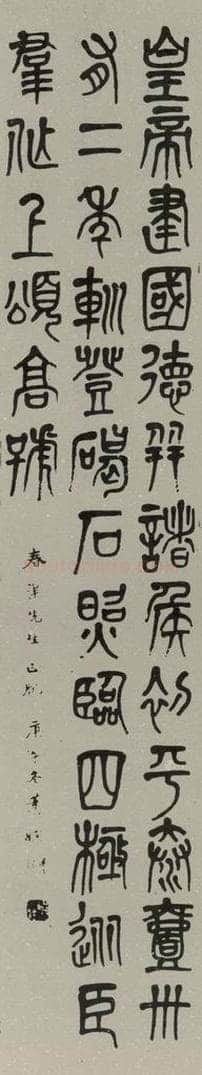 皇帝建國德并諸侯初平泰壹卅
有二年巡登碣石照臨四極從臣
羣作上頌高號
春 先生正 庚午冬黃